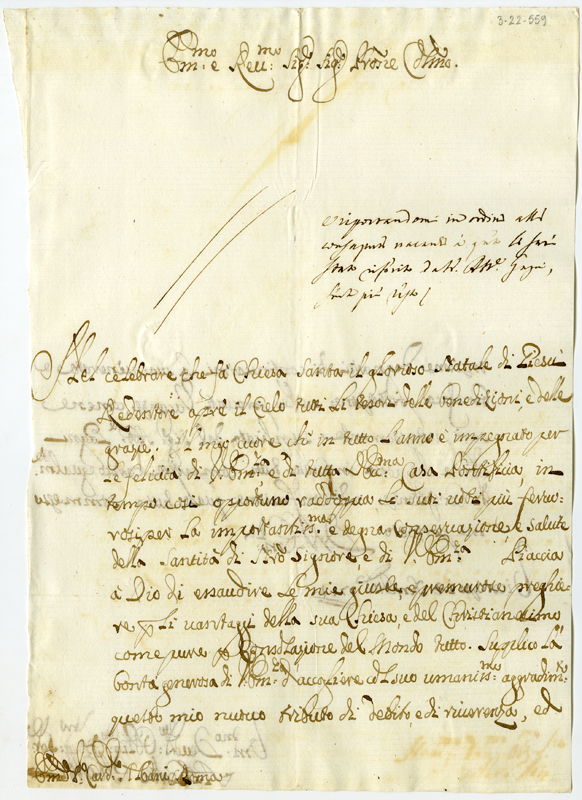 3-22-559
Em:mo e Rev:mo Sig:r Sig:r Prone Col:mo
riportandomi in ordine alle
stato riferito dal Sr. Abb.e
più
Nel celebrare che fà Chiesa Santa il glorioso Natale di Giesù
Redentore apre il Cielo tutti li tesori delle benedizioni, e delle
grazie. Il mio cuore che in tutto l'anno è impiegato per
le felicità di V. Em:za, e di tutta l'Ecc:ma Casa Pontificia, in
tempo così opportuno raddoppia li suoi voti più fervo-
rosi per la importantiss:ma, e degna conservazione, e salute
della Santità di Nro Signore, e di V. Em:za Piaccia
à Dio di essaudire le mie giuste, e premurose preghie-
re p li vantaggi della sua Chiesa, e del Christianesimo
come pure p Consolazione del Mondo tutto. Suplico la
bontà generosa di V. Em:za d'accogliere col suo umaniss:mo aggradim:to
questo mio nuovo tributo di debito, e di riverenza, ed
Em:mo Sr Card:l Albani Roma